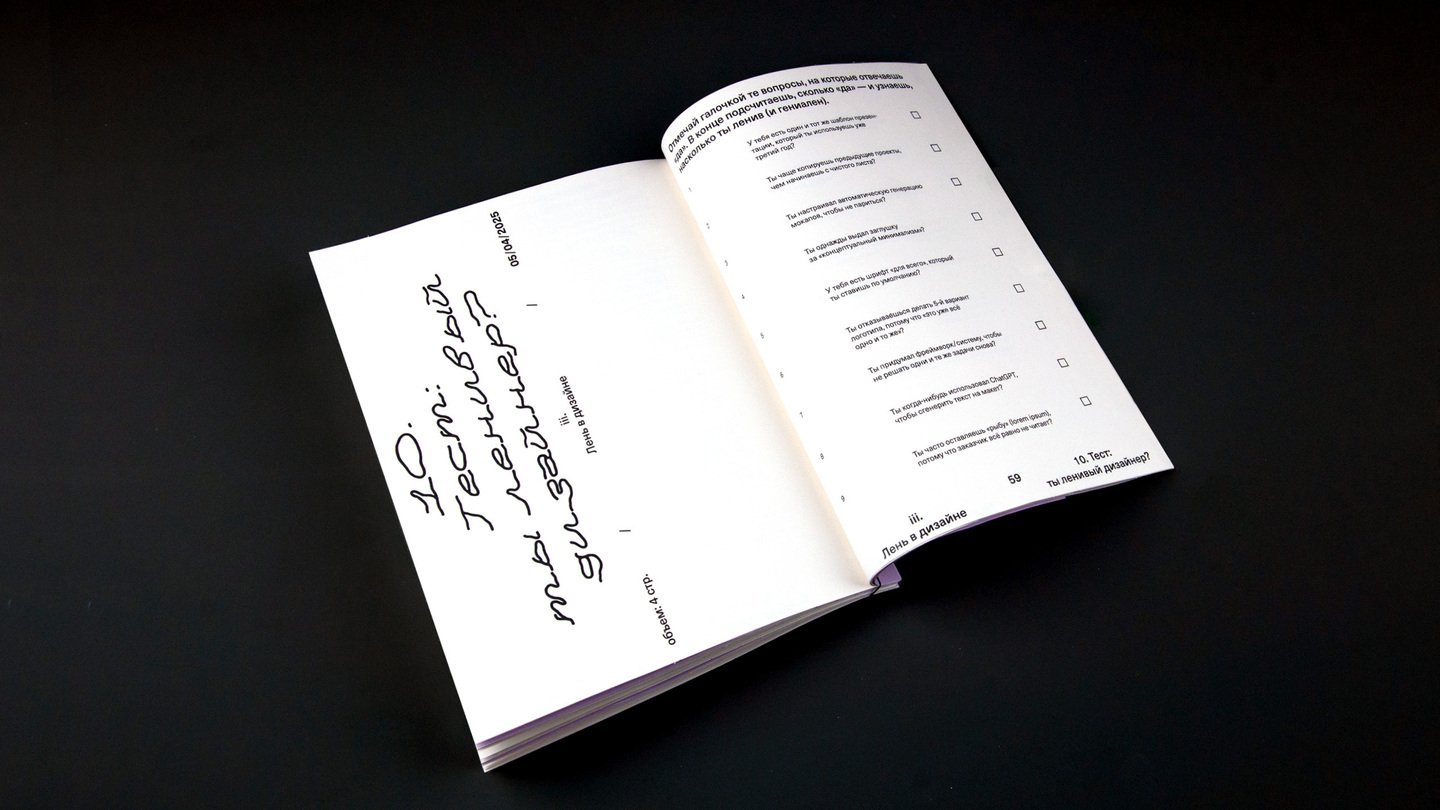 10.
Тест:
ты ленивый
дизайнер?
объем: 4 стр.
iii.
Лень в дизайне
05/04/2025
Отмечай галочкой те вопросы, на которые отвечаешь
«да». В конце подсчитаешь, сколько «да» — и узнаешь,
насколько ты ленив (и гениален).
1
У тебя есть один и тот же шаблон презен-
тации, который ты используешь уже
третий год?
2
Ты чаще копируешь предыдущие проекты,
чем начинаешь с чистого листа?
3
Ты настраивал автоматическую генерацию
мокапов, чтобы не париться?
4
Ты однажды выдал заглушку
за «концептуальный минимализм»?
5
У тебя есть шрифт «для всего», который
ты ставишь по умолчанию?
6
Ты отказываешься делать 5-й вариант
логотипа, потому что «это уже всё
одно и то же»?
7
Ты придумал фреймворк/систему, чтобы
не решать одни и те же задачи снова?
8
Ты когда-нибудь использовал ChatGPT,
чтобы сгенерить текст на макет?
9
Ты часто оставляешь «рыбу» (lorem ipsum),
потому что заказчик всё равно не читает?
iii.
Лень в дизайне
59
10. Тест:
ты ленивый дизайнер?